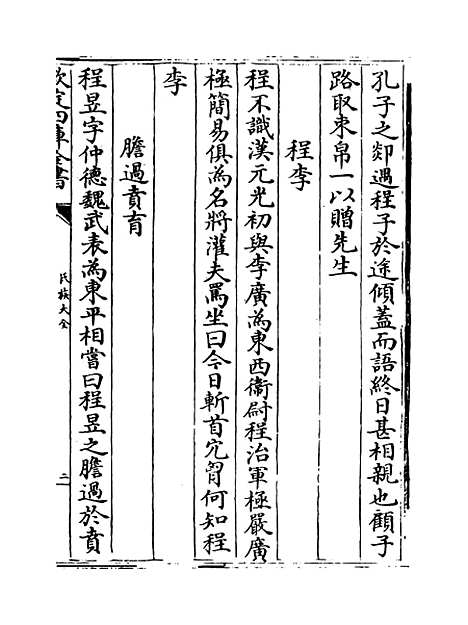 孔子之郯遇程子於途傾蓋而語終日甚相親也顧子
路取束帛一以贈先生
程李
程不識漢元光初與李廣為東西衛尉程治軍極嚴廣
極簡易俱為名將灌夫罵坐曰今日斬首穴胷何知程
李
膽過賁育
程昱字仲德魏武表為東平相嘗曰程昱之膽過於賁
欽定四庫全書
氏族大全
二